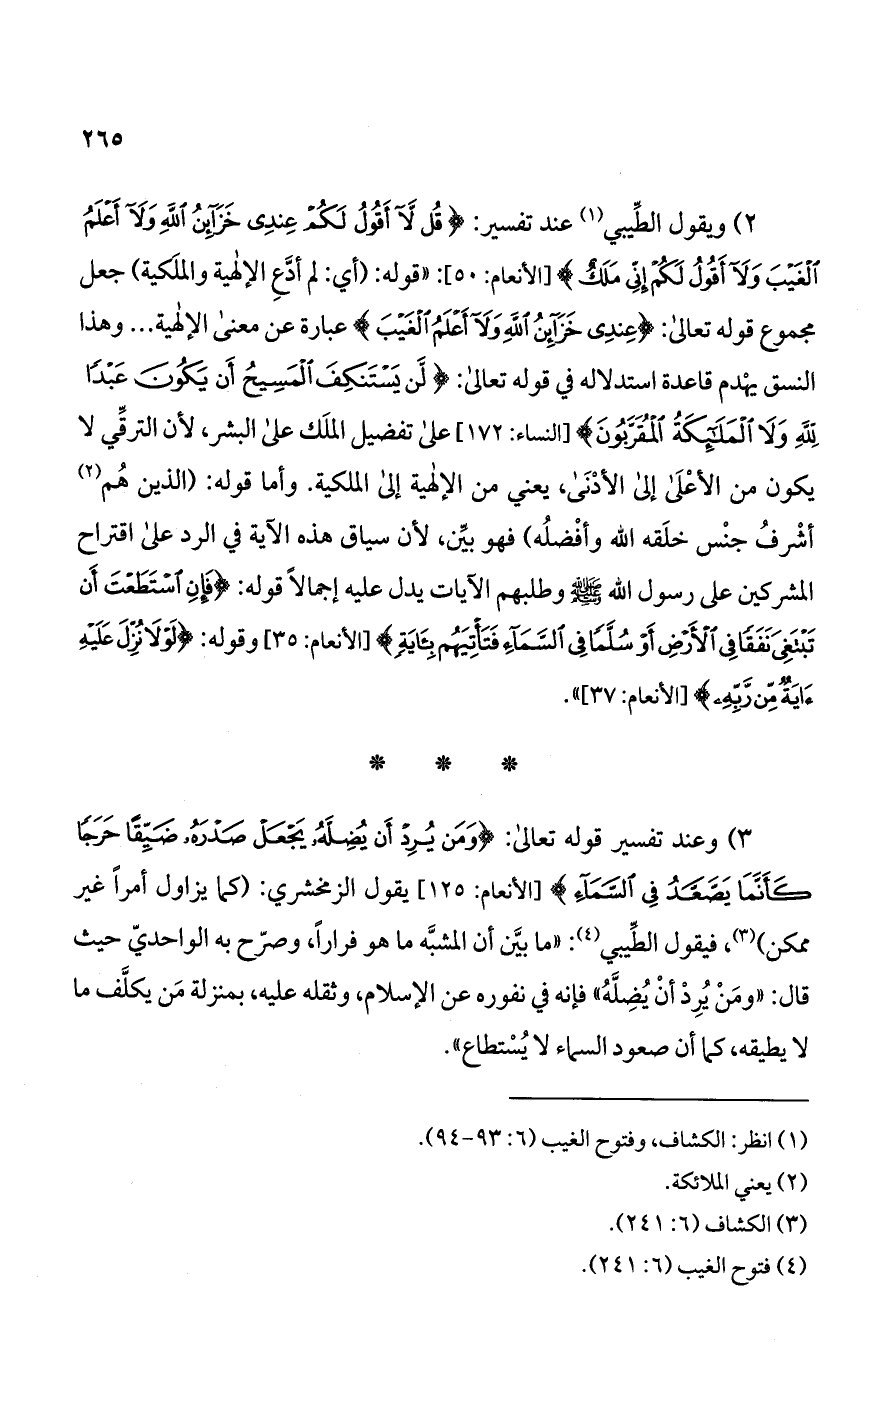 ٢٦٥
٢) ويقول الطِّيبي(١) عند تفسير: ﴿قُل لَّآ أَقُولُ لَكُمْ عِندِى خَزَآئِنُ ٱللَّهِ وَلَآ أَعْلَمُ
ٱلْغَيْبَ وَلَآ أَقُولُ لَكُمْ إِنِّى مَلَكٌ﴾ [الأنعام: ٥٠]: «قوله: (أي: لم أدَّعِ الإلٰهية والملَكية) جعل
مجموع قوله تعالىٰ: ﴿عِندِى خَزَآئِنُ ٱللَّهِ وَلَآ أَعْلَمُ ٱلْغَيْبَ﴾ عبارة عن معنىٰ الإلٰهية... وهذا
النسق يهْدم قاعدة استدلاله في قوله تعالىٰ: ﴿لَّن يَسْتَنكِفَ ٱلْمَسِيحُ أَن يَكُونَ عَبْدًا
لِّلَّهِ وَلَا ٱلْمَلَٰٓئِكَةُ ٱلْمُقَرَّبُونَ﴾ [النساء: ١٧٢] علىٰ تفضيل الملَك علىٰ البشر، لأن الترقِّي لا
يكون من الأعْلَىٰ إلىٰ الأدْنَىٰ، يعني من الإلٰهية إلىٰ الملكية. وأما قوله: (الذين هُم(٢)
أشْرفُ جنْس خلَقه الله وأفْضلُه) فهو بيِّن، لأن سياق هذه الآية في الرد علىٰ اقتراح
المشركين على رسول الله ﷺ وطلبهم الآيات يدل عليه إجمالاً قوله: ﴿فَإِنِ ٱسْتَطَعْتَ أَن
تَبْتَغِىَ نَفَقًا فِى ٱلْأَرْضِ أَوْ سُلَّمًا فِى ٱلسَّمَآءِ فَتَأْتِيَهُم بِـَٔايَةٍ﴾ [الأنعام: ٣٥] وقوله: ﴿لَوْلَا نُزِّلَ عَلَيْهِ
ءَايَةٌ مِّن رَّبِّهِۦ﴾ [الأنعام: ٣٧]».
* * *
٣) وعند تفسير قوله تعالىٰ: ﴿وَمَن يُرِدْ أَن يُضِلَّهُۥ يَجْعَلْ صَدْرَهُۥ ضَيِّقًا حَرَجًا
كَأَنَّمَا يَصَّعَّدُ فِى ٱلسَّمَآءِ﴾ [الأنعام: ١٢٥] يقول الزمخشري: (كما يزاول أمراً غير
ممكن)(٣)، فيقول الطِّيبي(٤): «ما بيَّن أن المشبَّه ما هو فراراً، وصرّح به الواحديّ حيث
قال: «ومَنْ يُرِدْ أنْ يُضِلَّهُ» فإنه في نفوره عن الإسلام، وثقله عليه، بمنزلة مَن يكلَّف ما
لا يطيقه، كما أن صعود السماء لا يُسْتطاع».
(١) انظر: الكشاف، وفتوح الغيب (٦: ٩٣-٩٤).
(٢) يعني الملائكة.
(٣) الكشاف (٦: ٢٤١).
(٤) فتوح الغيب (٦: ٢٤١).